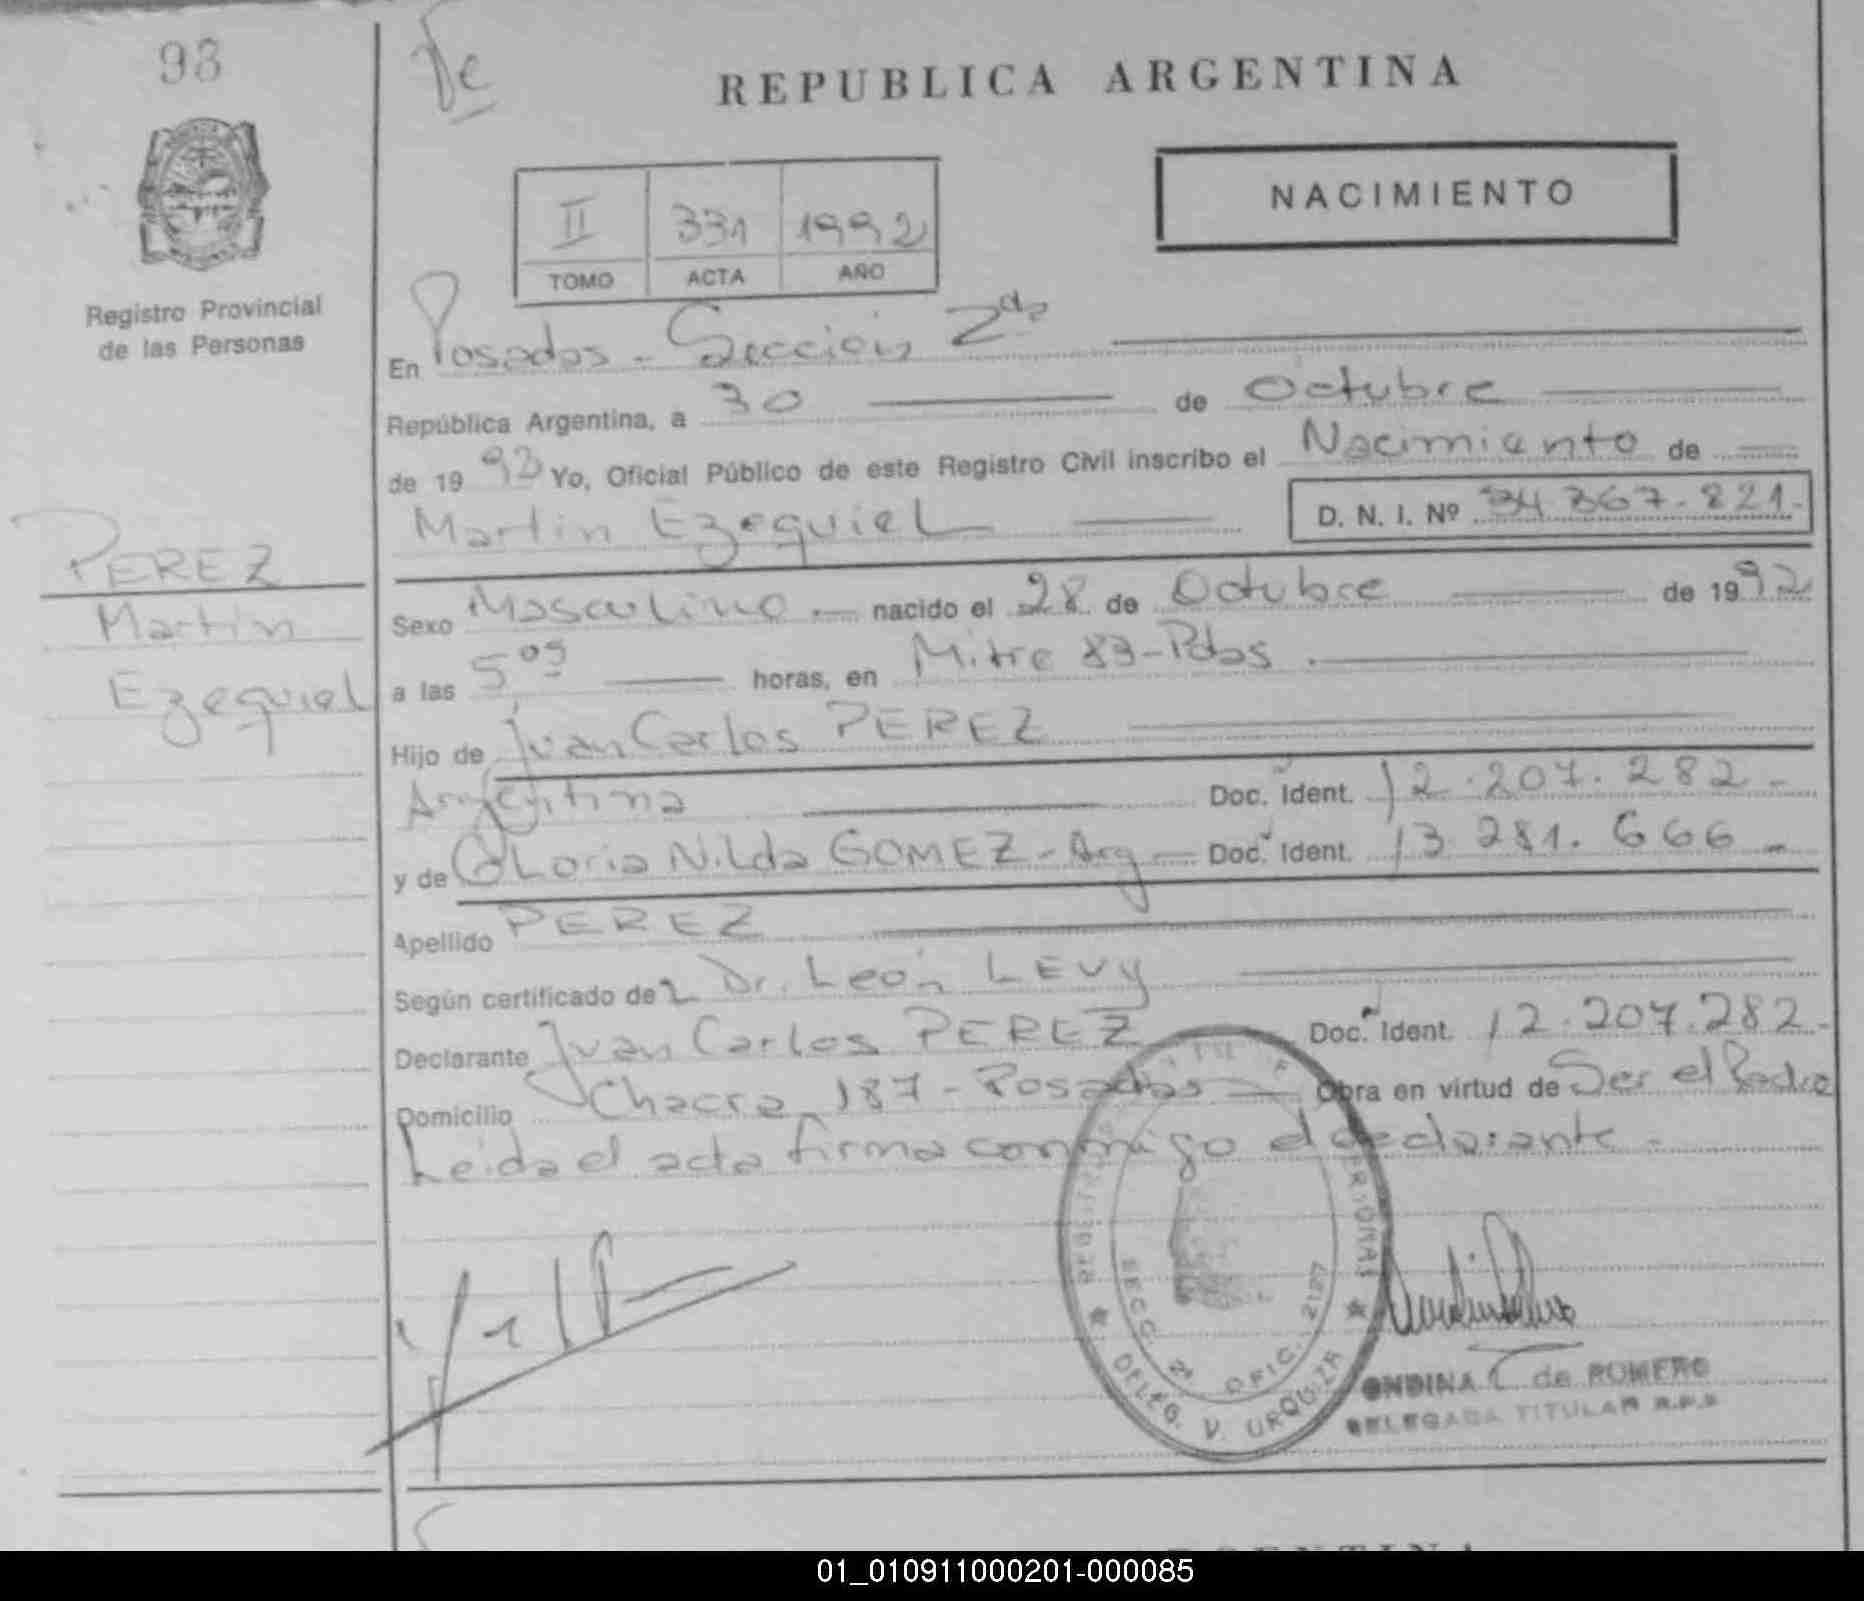 98
De
REPUBLICA ARGENTINA
Registro Provincial
de las Personas
II 331 1992
TOMO ACTA AÑO
NACIMIENTO
En Posadas - Sección 2da
República Argentina, a 30 de Octubre
de 1992 Yo, Oficial Público de este Registro Civil inscribo el Nacimiento de
Martin Ezequiel D. N. I. Nº 34.367.221.
PEREZ
Martin
Ezequiel
Sexo Masculino nacido el 28 de Octubre de 1992
a las 5,05 horas, en Mitre 83-Pdas.
Hijo de Juan Carlos PEREZ
Argentina Doc. Ident. 12.207.282-
y de Gloria Nilda GOMEZ - Arg Doc. Ident. 13 281.666-
Apellido PEREZ
Según certificado del Dr. León LEVY
Declarante Juan Carlos PEREZ Doc. Ident. 12.207.282-
Domicilio Chacra 187 - Posadas Obra en virtud de Ser el Padre
Leida el acta firma conmigo el declarante.
SECC. 2ª OFIC. 2127
DELEG. V. URQUIZA
ONDINA de ROMERO
DELEGADA TITULAR R.P.P
01_010911000201-000085